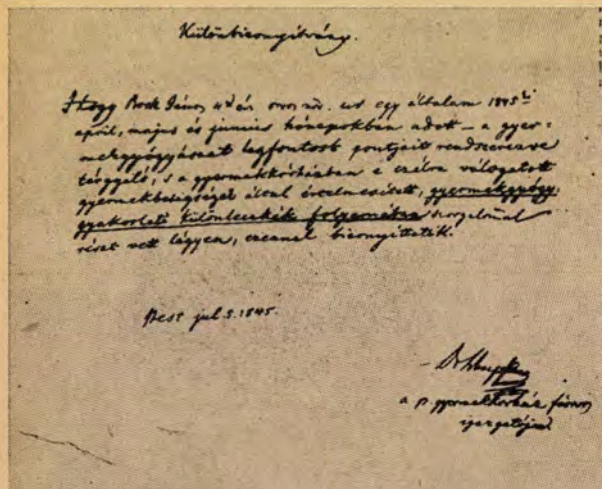 Különbizonyítvány.
Hogy Bock János 4d év orvosnöv. úr egy általam 1845ki
april, majus és junius hónapokban adott – a gyer=
mekgyógyászat legfontosb pontjait rendszeresen
tárgyaló, s a gyermekkórházban e czélra válogatott
gyermekbetegségek által értelmesitett, gyermekgyógy.
gyakorlati különleczkék folyamában szorgalmal
részt vett légyen, ezennel bizonyittatik.
Pest jul. 5. 1845.
a p. gyermekkórház főorvos
igazgatója